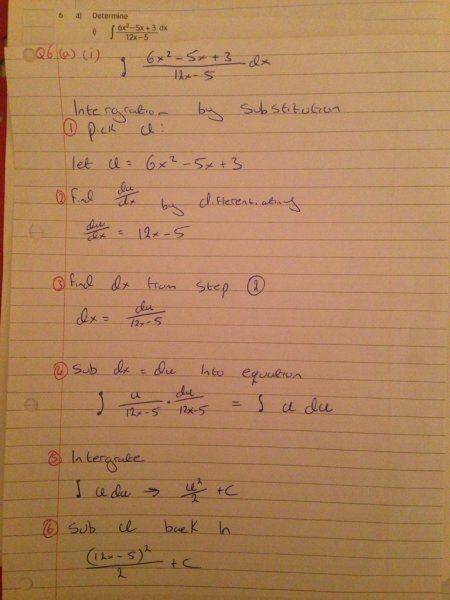 6 a) Determine
i) ∫ 6x²-5x+3 / 12x-5 dx
Q6 (a) (i) ∫ 6x² - 5x + 3 / 12x - 5 dx
Intergration by Substitution
① pick u:
let u = 6x² - 5x + 3
② find du/dx by differentiating
du/dx = 12x - 5
③ find dx from step ②
dx = du / 12x-5
④ Sub dx = du into equation
∫ u / 12x-5 . du / 12x-5 = ∫ u du
⑤ Intergrate
∫ u du ⇒ u² / 2 + C
⑥ Sub u back in
(12x - 5)² / 2 + C